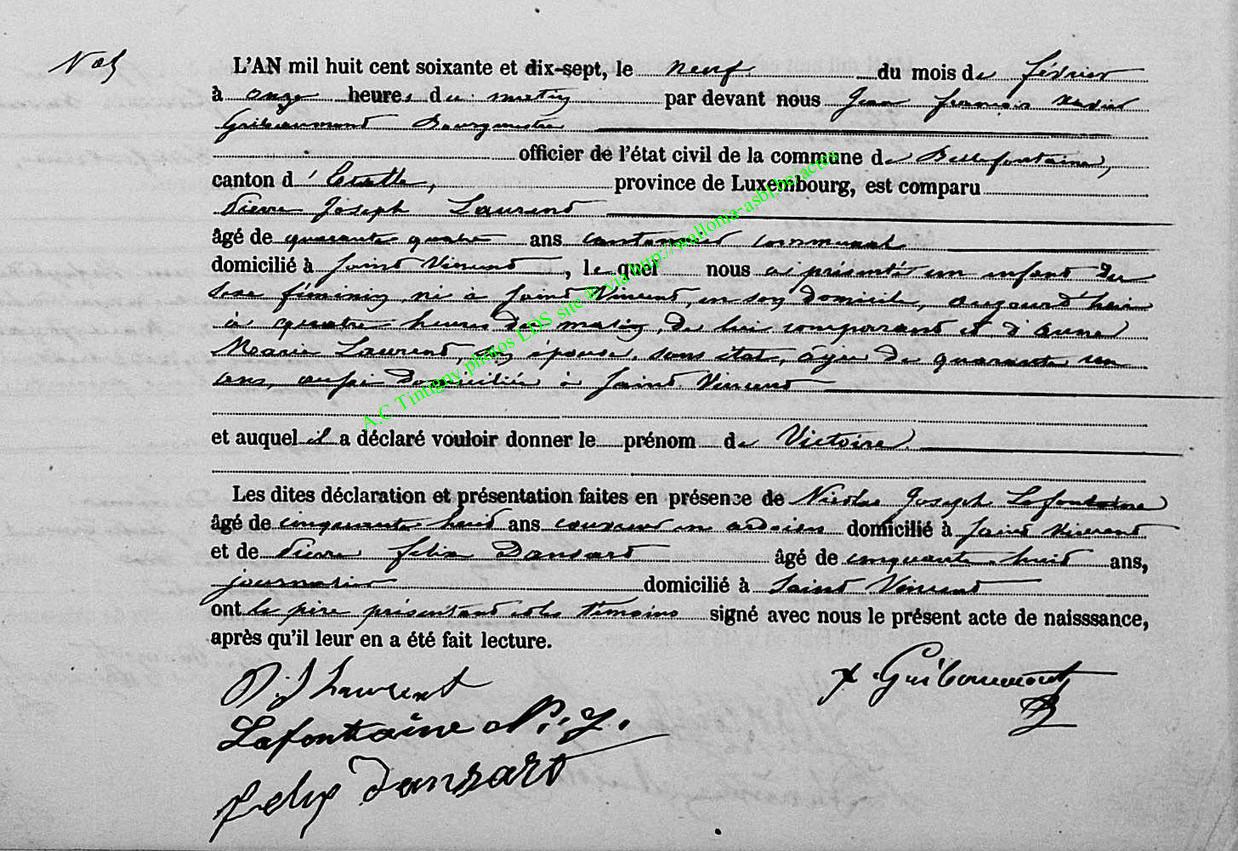 N° 5
L'AN mil huit cent soixante et dix-sept, le neuf du mois de février
à onze heures du matin par devant nous Jean François Xavier
Guibeaumont Bourgmestre
officier de l'état civil de la commune de Bellefontaine,
canton d'Etalle, province de Luxembourg, est comparu
Pierre Joseph Laurent
âgé de quarante quatre ans cantonnier communal
domicilié à Saint Vincent, lequel nous a présenté un enfant du
sexe féminin, né à Saint Vincent, en son domicile, aujourd'hui
à quatre heures du matin, de lui comparant et d'Anne
Marie Laurent, son épouse, sans état, âgée de quarante un
ans, aussi domiciliée à Saint Vincent
et auquel il a déclaré vouloir donner le prénom de Victoire
Les dites déclaration et présentation faites en présence de Nicolas Joseph Lafontaine
âgé de cinquante huit ans couvreur en ardoises domicilié à Saint Vincent
et de Pierre Felix Dansart âgé de cinquante huit ans,
journalier domicilié à Saint Vincent
ont le père présentant et les témoins signé avec nous le présent acte de naisssance,
après qu'il leur en a été fait lecture.
P. J Laurent
x Guibeaumont
Lafontaine N. J.
felix Dansart
A.C Tintigny photos LDS site & via http://wallonia-asbl.be/actes